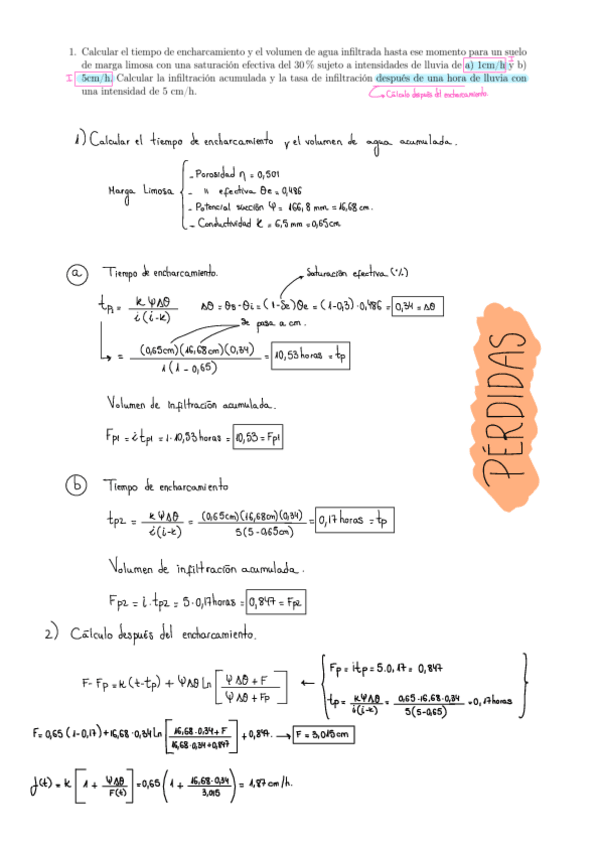 1. Calcular el tiempo de encharcamiento y el volumen de agua infiltrada hasta ese momento para un suelo
de marga limosa con una saturación efectiva del 30 % sujeto a intensidades de lluvia de a) 1cm/h y b)
5cm/h. Calcular la infiltración acumulada y la tasa de infiltración después de una hora de lluvia con
una intensidad de 5 cm/h.
I
I
Cálculo después del encharcamiento.
1) Calcular el tiempo de encharcamiento y el volumen de agua acumulada.
Marga Limosa
- Porosidad η = 0,501
- " efectiva θe = 0,486
- Potencial succión Ψ = 166,8 mm. = 16,68 cm.
- Conductividad K = 6,5 mm = 0,65cm
a Tiempo de encharcamiento.
Saturación efectiva (%)
tp1 = KΨΔθ / i(i-k) Δθ = θs - θi = (1-Se)θe = (1-0,3)·0,486 = 0,34 = Δθ
Se pasa a cm.
= (0,65cm)(16,68cm)(0,34) / 1(1-0,65) = 10,53 horas = tp
Volumen de infiltración acumulada.
Fp1 = i tp1 = 1·10,53 horas = 10,53 = Fp1
b Tiempo de encharcamiento
tp2 = KΨΔθ / i(i-k) = (0,65cm)(16,68cm)(0,34) / 5(5-0,65cm) = 0,17 horas = tp
Volumen de infiltración acumulada.
Fp2 = i·tp2 = 5·0,17horas = 0,847 = Fp2
PÉRDIDAS
2) Cálculo después del encharcamiento.
F-Fp = K(t-tp) + ΨΔθ Ln [ΨΔθ + F / ΨΔθ + Fp] ←
Fp = itp = 5.0,17 = 0,847
tp = KΨΔθ / i(i-k) = 0,65·16,68·0,34 / 5(5-0,65) = 0,17horas
F = 0,65 (1-0,17) + 16,68·0,34 Ln [16,68·0,34 + F / 16,68·0,34 + 0,847] + 0,847. → F = 3,015cm
f(t) = K [1 + ΨΔθ / F(t)] = 0,65 (1 + 16,68·0,34 / 3,015) = 1,87 cm/h.